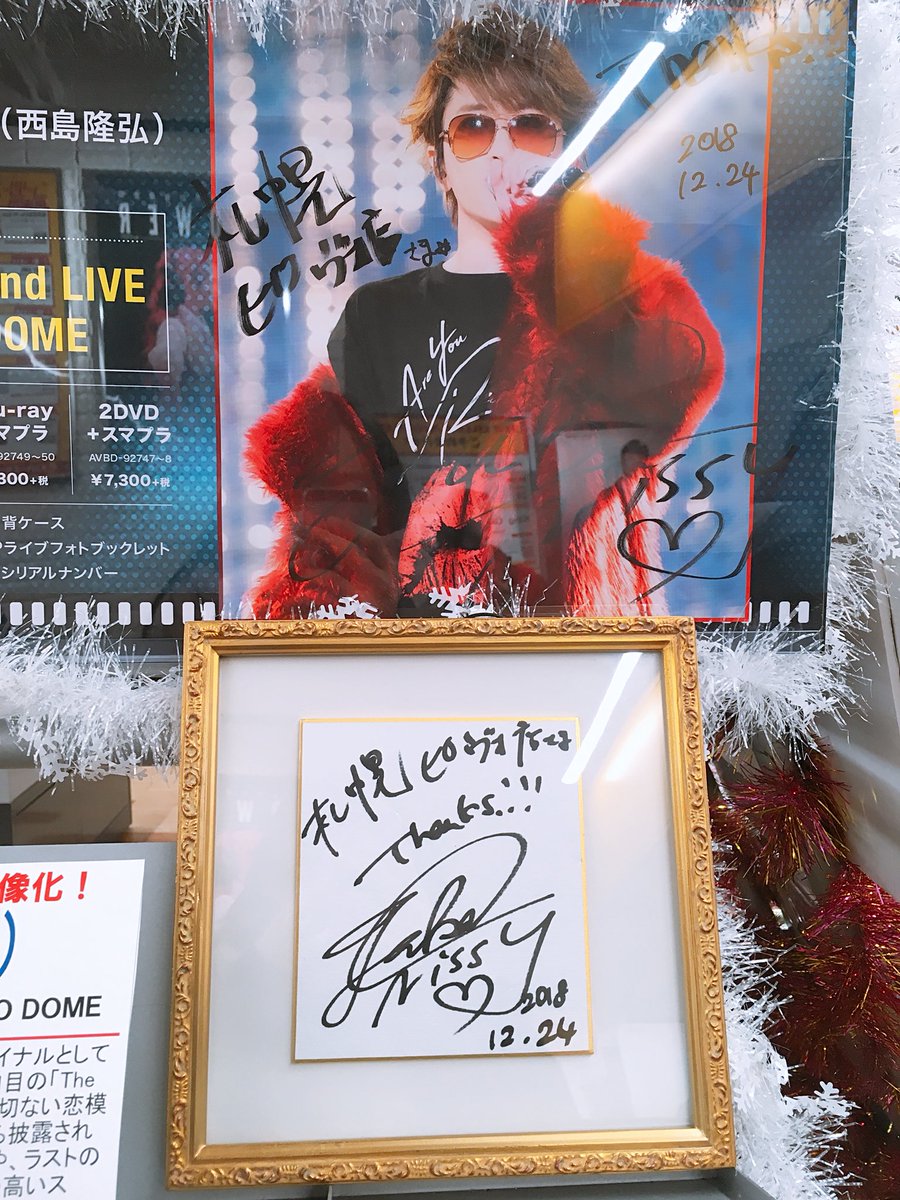 (西島隆弘)
nd LIVE
OME
u-ray
マプラ
-92749〜50
300+税
2DVD
+スマプラ
AVBD-92747〜8
¥7,300+税
背ケース
ライブフォトブックレット
シリアルナンバー
札幌
ピヴォ店
さま
Thanks
2018
12.24
Are You
issy
札幌ピヴォ店さま
Thanks!!!
Nissy
2018
12.24
像化!
O DOME
イナルとして
目の「The
切ない恋模
披露され
、ラストの
高いス